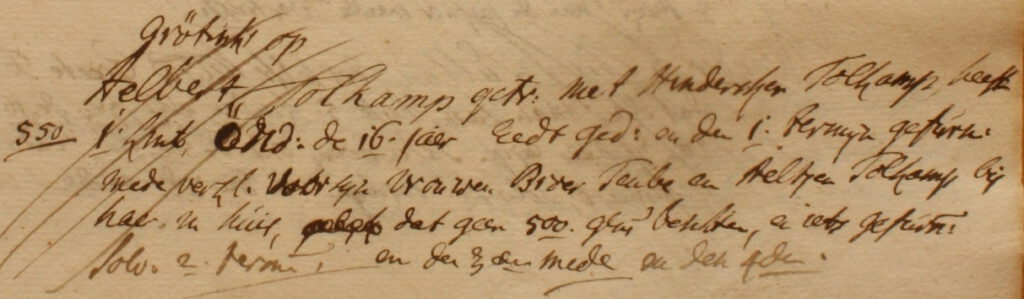 Grötinks op
Helbert Tolkamp getr: met Hinderckjen Tolkamp, heeft
550 1. kint, oud: de 16. jaer Eedt ged: en den 1. termijn gefurn:
mede verkl. voor sijn vrouwen Broer Taube en Aeltjen Tolkamp bij
haer in huis, dat geen 500. glns besitten, en iets gefurn:
solv. 2. term: en den 3den mede en den 4den.